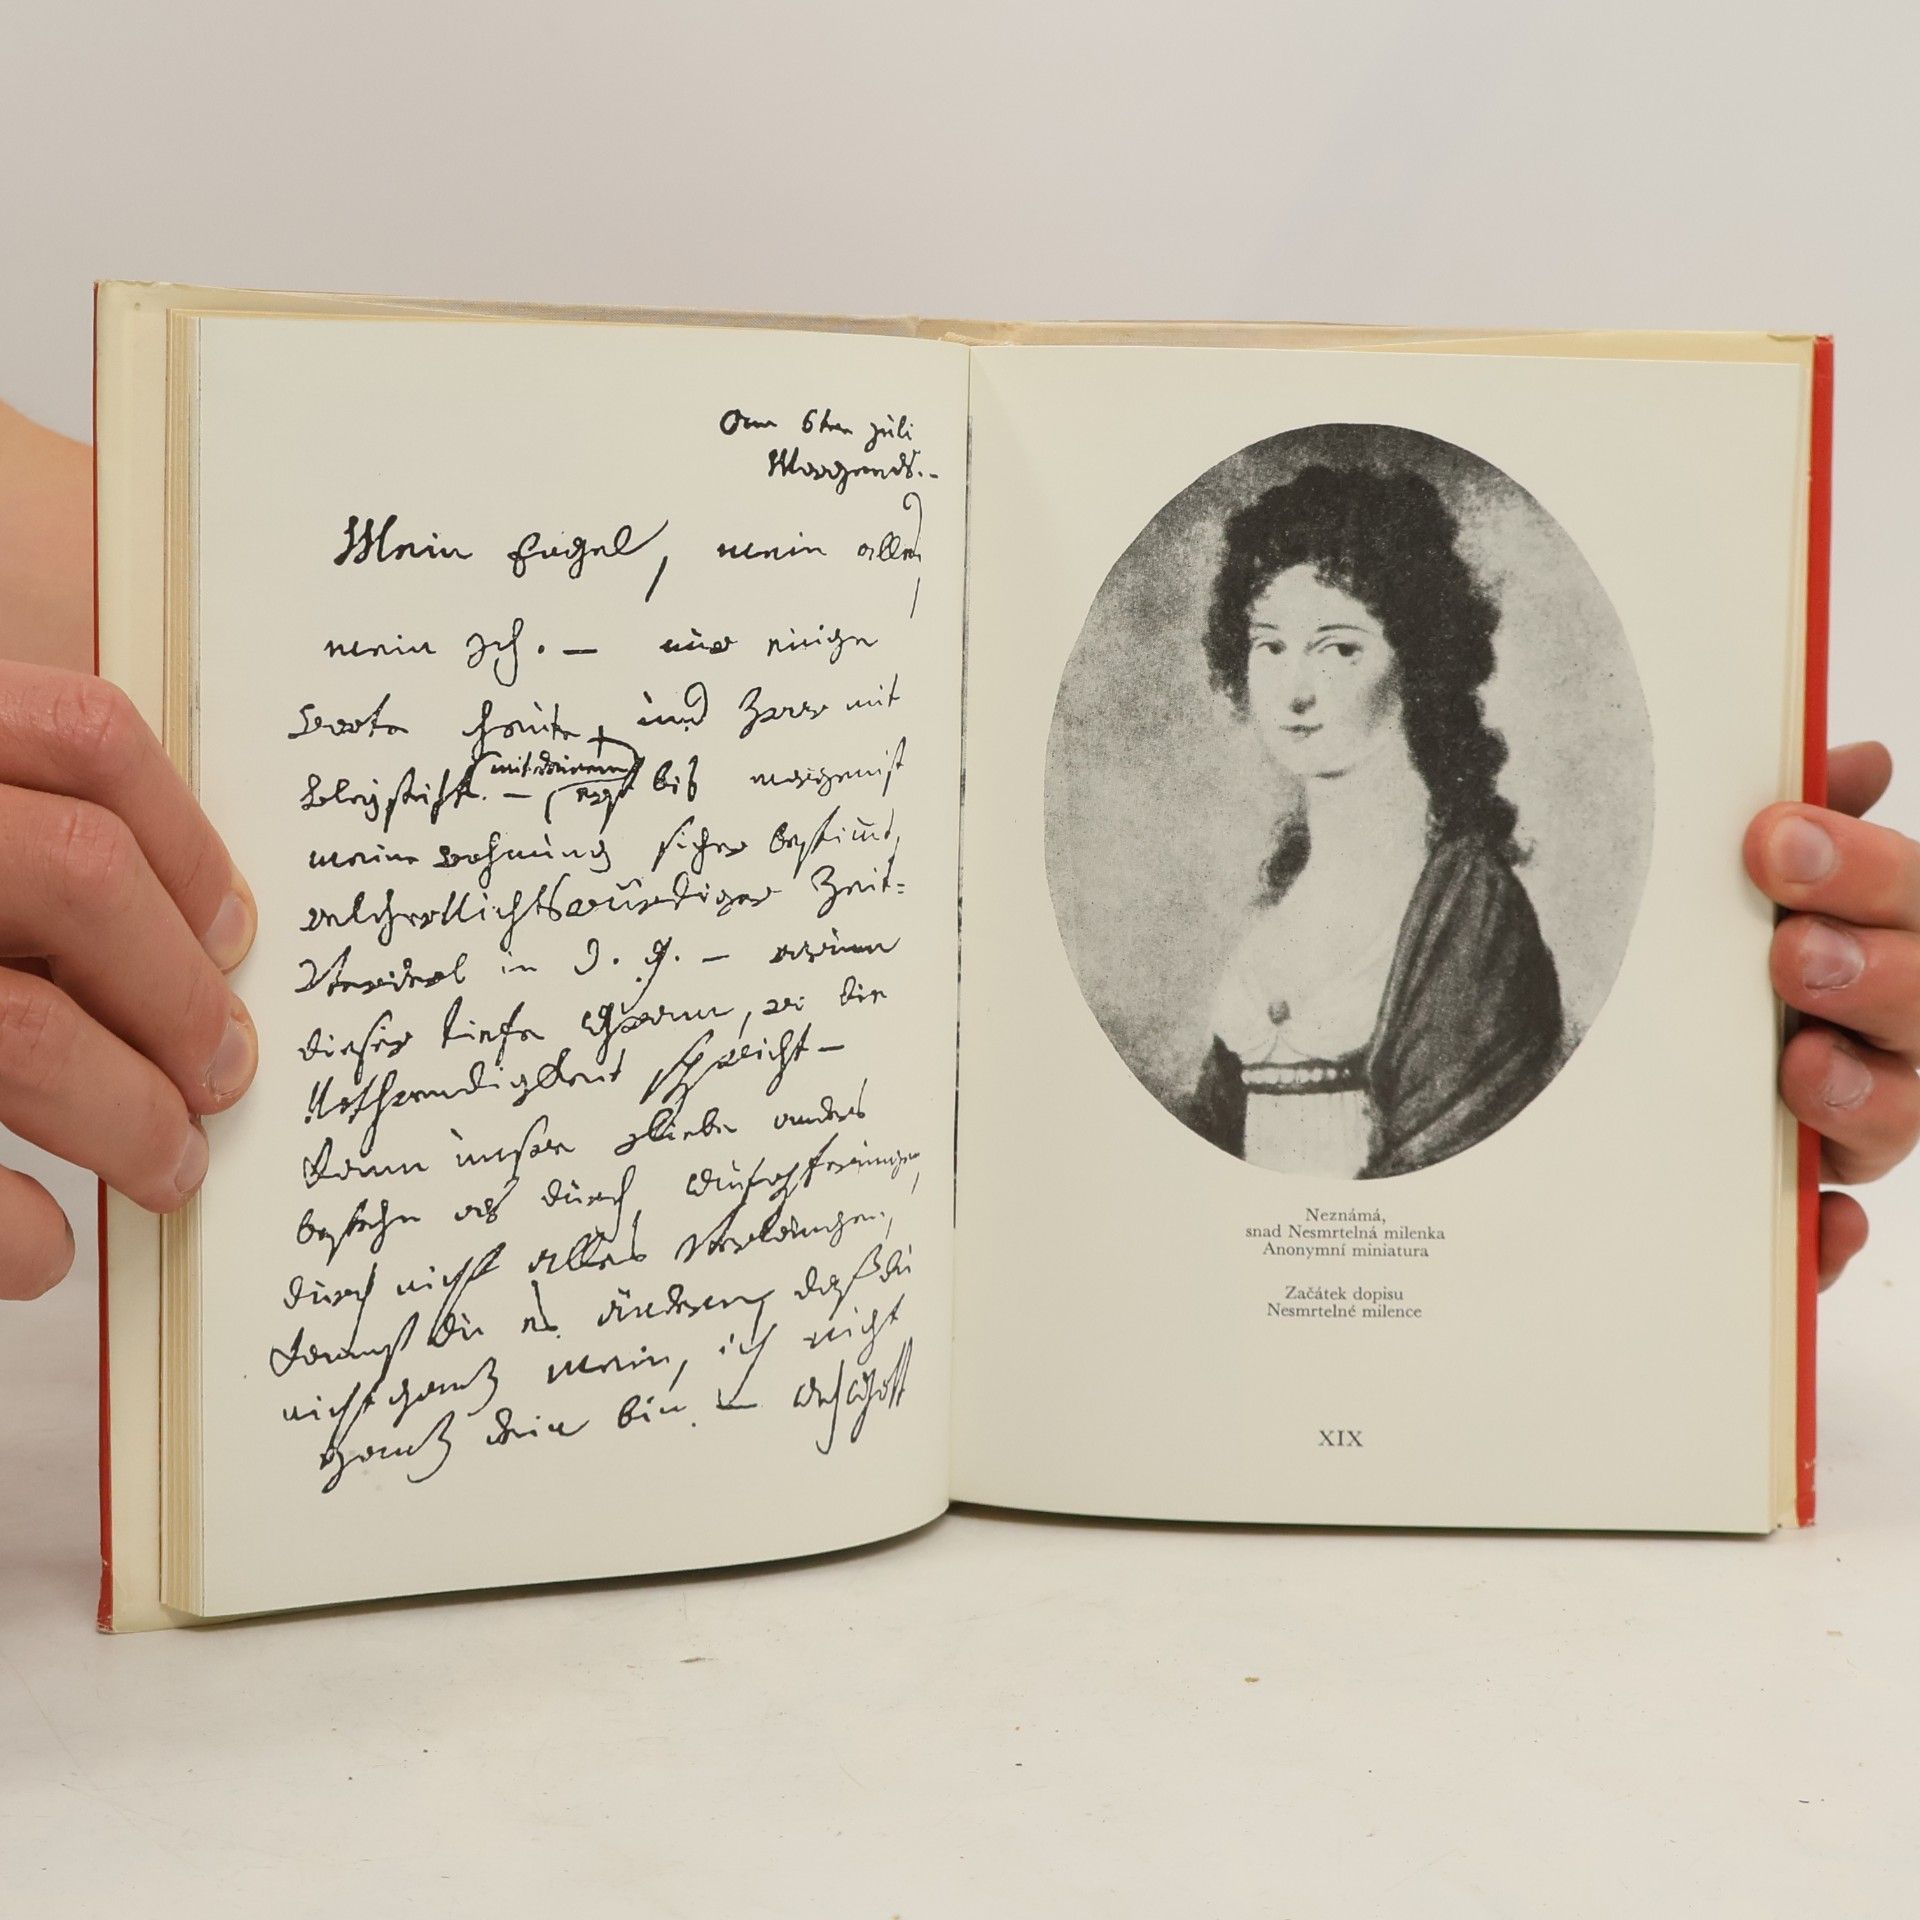 Am 6ten Juli
Morgends. –
Mein Engel, mein alles,
mein Ich. – nur einige
Worte heute, und zwar mit
Bleystift – (mit deinem) erst bis morgen ist
meine Wohnung sicher bestimmt,
welcher Nichtswürdiger Zeit=
Verderb in d. g. – warum
dieser tiefe Gram, wo die
Nothwendigkeit spricht –
Kann unsre Liebe anders
bestehn als durch Aufopferungen,
durch nicht alles verlangen,
kannst du es ändern, daß du
nicht ganz mein, ich nicht
ganz dein bin – Ach Gott
Neznámá,
snad Nesmrtelná milenka
Anonymní miniatura
Začátek dopisu
Nesmrtelné milence
XIX